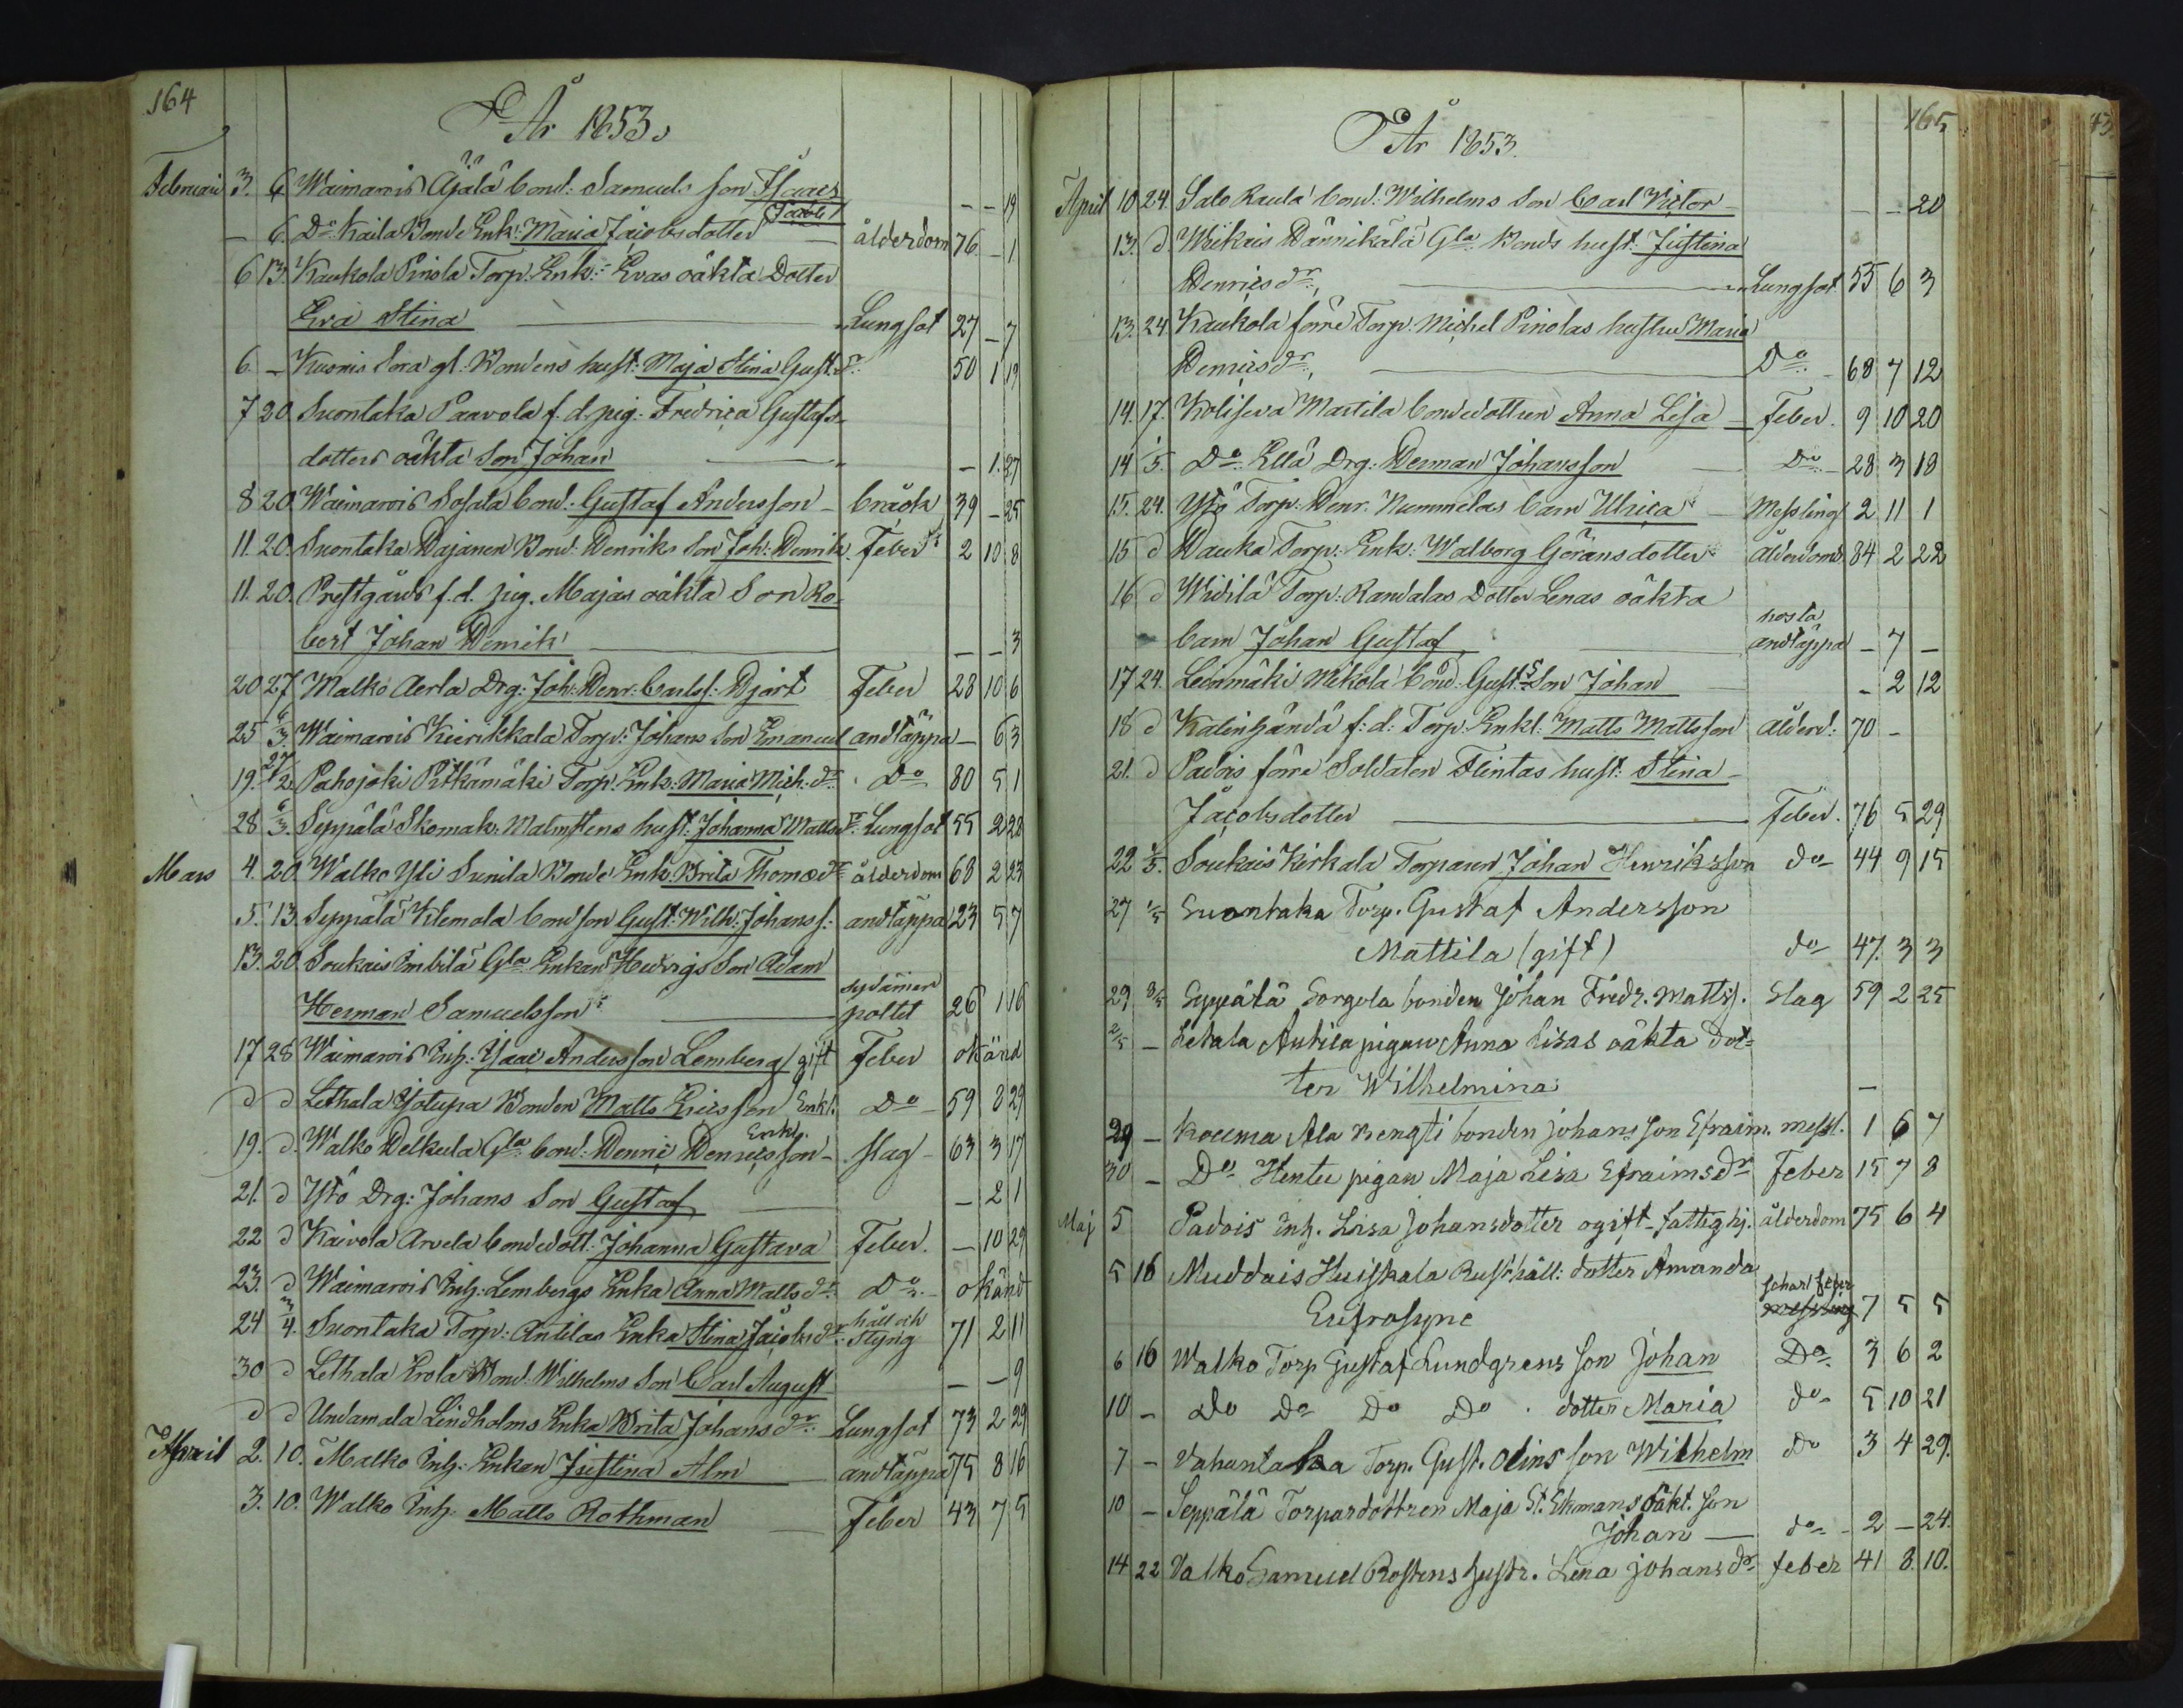 164
År 1853.
Februari 3. 6 Waimarois Äjälä bond: Samuels son Isaac
Jacob - - 19
- 6. Do Kaila Bonde Enk: Maria Jacobsdotter ålderdom 76 - 1
6 13. Kaukola Pinola Torp. Enk: Evas oäkta Dotter
Eva Stina Lungsot 27 - 7
6. - Kusnis Sora gl. Bondens hust: Maja Stina Gust. dr 50 1 19
7 20 Suontaka Paavola f. d. pig. Fredrica Gustafs-
dotters oäkta Son Johan - 1. 27
8 20. Waimarois Sosala bond: Gustaf Andersson bråck 39 - 25
11. 20. Suontaka Dajanen Bond: Henriks Son Joh: Henrik Feber 2 10 8
11. 20. Prestgårds f. d. pig. Majas oäkta Son Ro-
bert Johan Henrik - - 3
20 27 Malko Aerla Drg: Joh: Henr: Carlss: Hjort Feber 28 10 6
25 6/3. Waimarois Kierikkala Torp: Johans Son Emanuel andtäppa - 6 3
19. 27/2. Pahojoki Pitkämäki Torp. Enk: Maria Mich. dr. Do 80 5 1
28 6/3. Seppälä Skomak: Malmstens hust. Johanna Matts dr. Lungsot 55 2 28
Mars 4. 20. Walko Yli Sunila Bonde Enk. Brita Thomæ dr ålderdom 68 2 23
5. 13. Seppälä Kilemola bondson Gust: Wilh: Johanss: andtäppa 23 5 7
13. 20. Soukais Imbilä Gla Enkan Hedvigs Son Adam
Herman Samuelsson sydämen poltet 26 1 16
17 28 Waimarois Inh: Isaac Andersson Lemberg gift Feber okänd
d d Lethala Yötupa Bonden Matts Ericsson Enkl. Do 59 8 29
19. d. Walko Delkula Gla bond: Henric Henricsson Enkl. slag 63 3 17
21. d Ytö Drg: Johans Son Gustaf - 2 1
22 d Kaivola Arvela bondedott: Johanna Gustava Feber. - 10 29
23. d Waimarois Inh: Lembergs Enka Anna Matts dr. Do okänd
24 3/4. Suontaka Torp: Antilas Enka Stina Jacobs dr. håll och Styng 71 2 11
30 d Lethala Erola Bond: Wilhelms Son Carl August - - 9
d d Undamala Lindholms Enka Brita Johans dr. Lungsot 73 2 29
April 2. 10. Malko Inh: Enkan Justina Alm andtäppa 75 8 16
3. 10. Walko Inh: Matts Rothman Feber 43 7 5
165
År 1853.
April 10 24. Salo Raula bond: Wilhelms Son Carl Victor - - 20
13. d Wuikais Hännikälä Gla Bonds hust. Justina
Henrics dr. Lungsot 55 6 3
13. 24 Kaukola förre Torp. Michel Pinolas hustru Maria
Henrics dr. Do 68 7 12
14. 17. Koliseva Martila bondedottren Anna Lisa Feber. 9 10 20
14 1/5. Do Ellä Drg: Herman Johansson Do 28 3 18
15. 24. Ytö Torp: Henr. Nummelas barn Ulrica Messling 2 11 1
15 d Hauka Torp: Enk: Walborg Göransdotter Ålderdom 84 2 22
16 d Widilä Torp: Randalas Dotter Lenas oäkta
barn Johan Gustaf hosta andtäppa - 7 -
17 24. Leinmäki Mikola bond: Gust:s Son Johan - 2 12
18 d Kalinhändä f: d: Torp: Enkl: Matts Mattsson Ålderd: 70 -
21. d Padois förre Soldaten Flintas hust: Stina
Jacobsdotter Feber. 76 5 29
22 1/5. Soukais Kirkala Torparen Johan Henriksson do 44 9 15
27 1/5 Suontaka Torp. Gustaf Andersson
Mattila (gift) do 47. 3 3
29 8/5 Seppälä Sorgola bonden Johan Fredr. Matts s. Slag 59 2 25
2/5 - Letala Antila pigan Anna Lisas oäkta dot-
ter Wilhelmina -
29 - Kouma Ala Bengti bonden Johans son Efraim. messl. 1 6 7
30 - Do Hentu pigan Maja Lisa Efraims dr Feber 15 7 8
Maj 5 Padois Inh. Lisa Johansdotter ogift fattighj. ålderdom 75 6 4
5 16 Muddais Huiskala Rusthåll: dotter Amanda
Eufrosyne schar feber messling 7 5 5
6 16 Walko Torp Gustaf Lundgrens son Johan Do. 3 6 2
10 - Do Do Do Do dotter Maria do 5 10 21
7 - Vahantaka Torp. Gust. Olins son Wilhelm do 3 4 29.
10 - Seppälä Torpardottren Maja St. Ekmans oäkt. Son
Johan do - 2 - 24.
14 22 Valko Samuel Rostens hustr. Lena Johans dr feber 41 8 10.